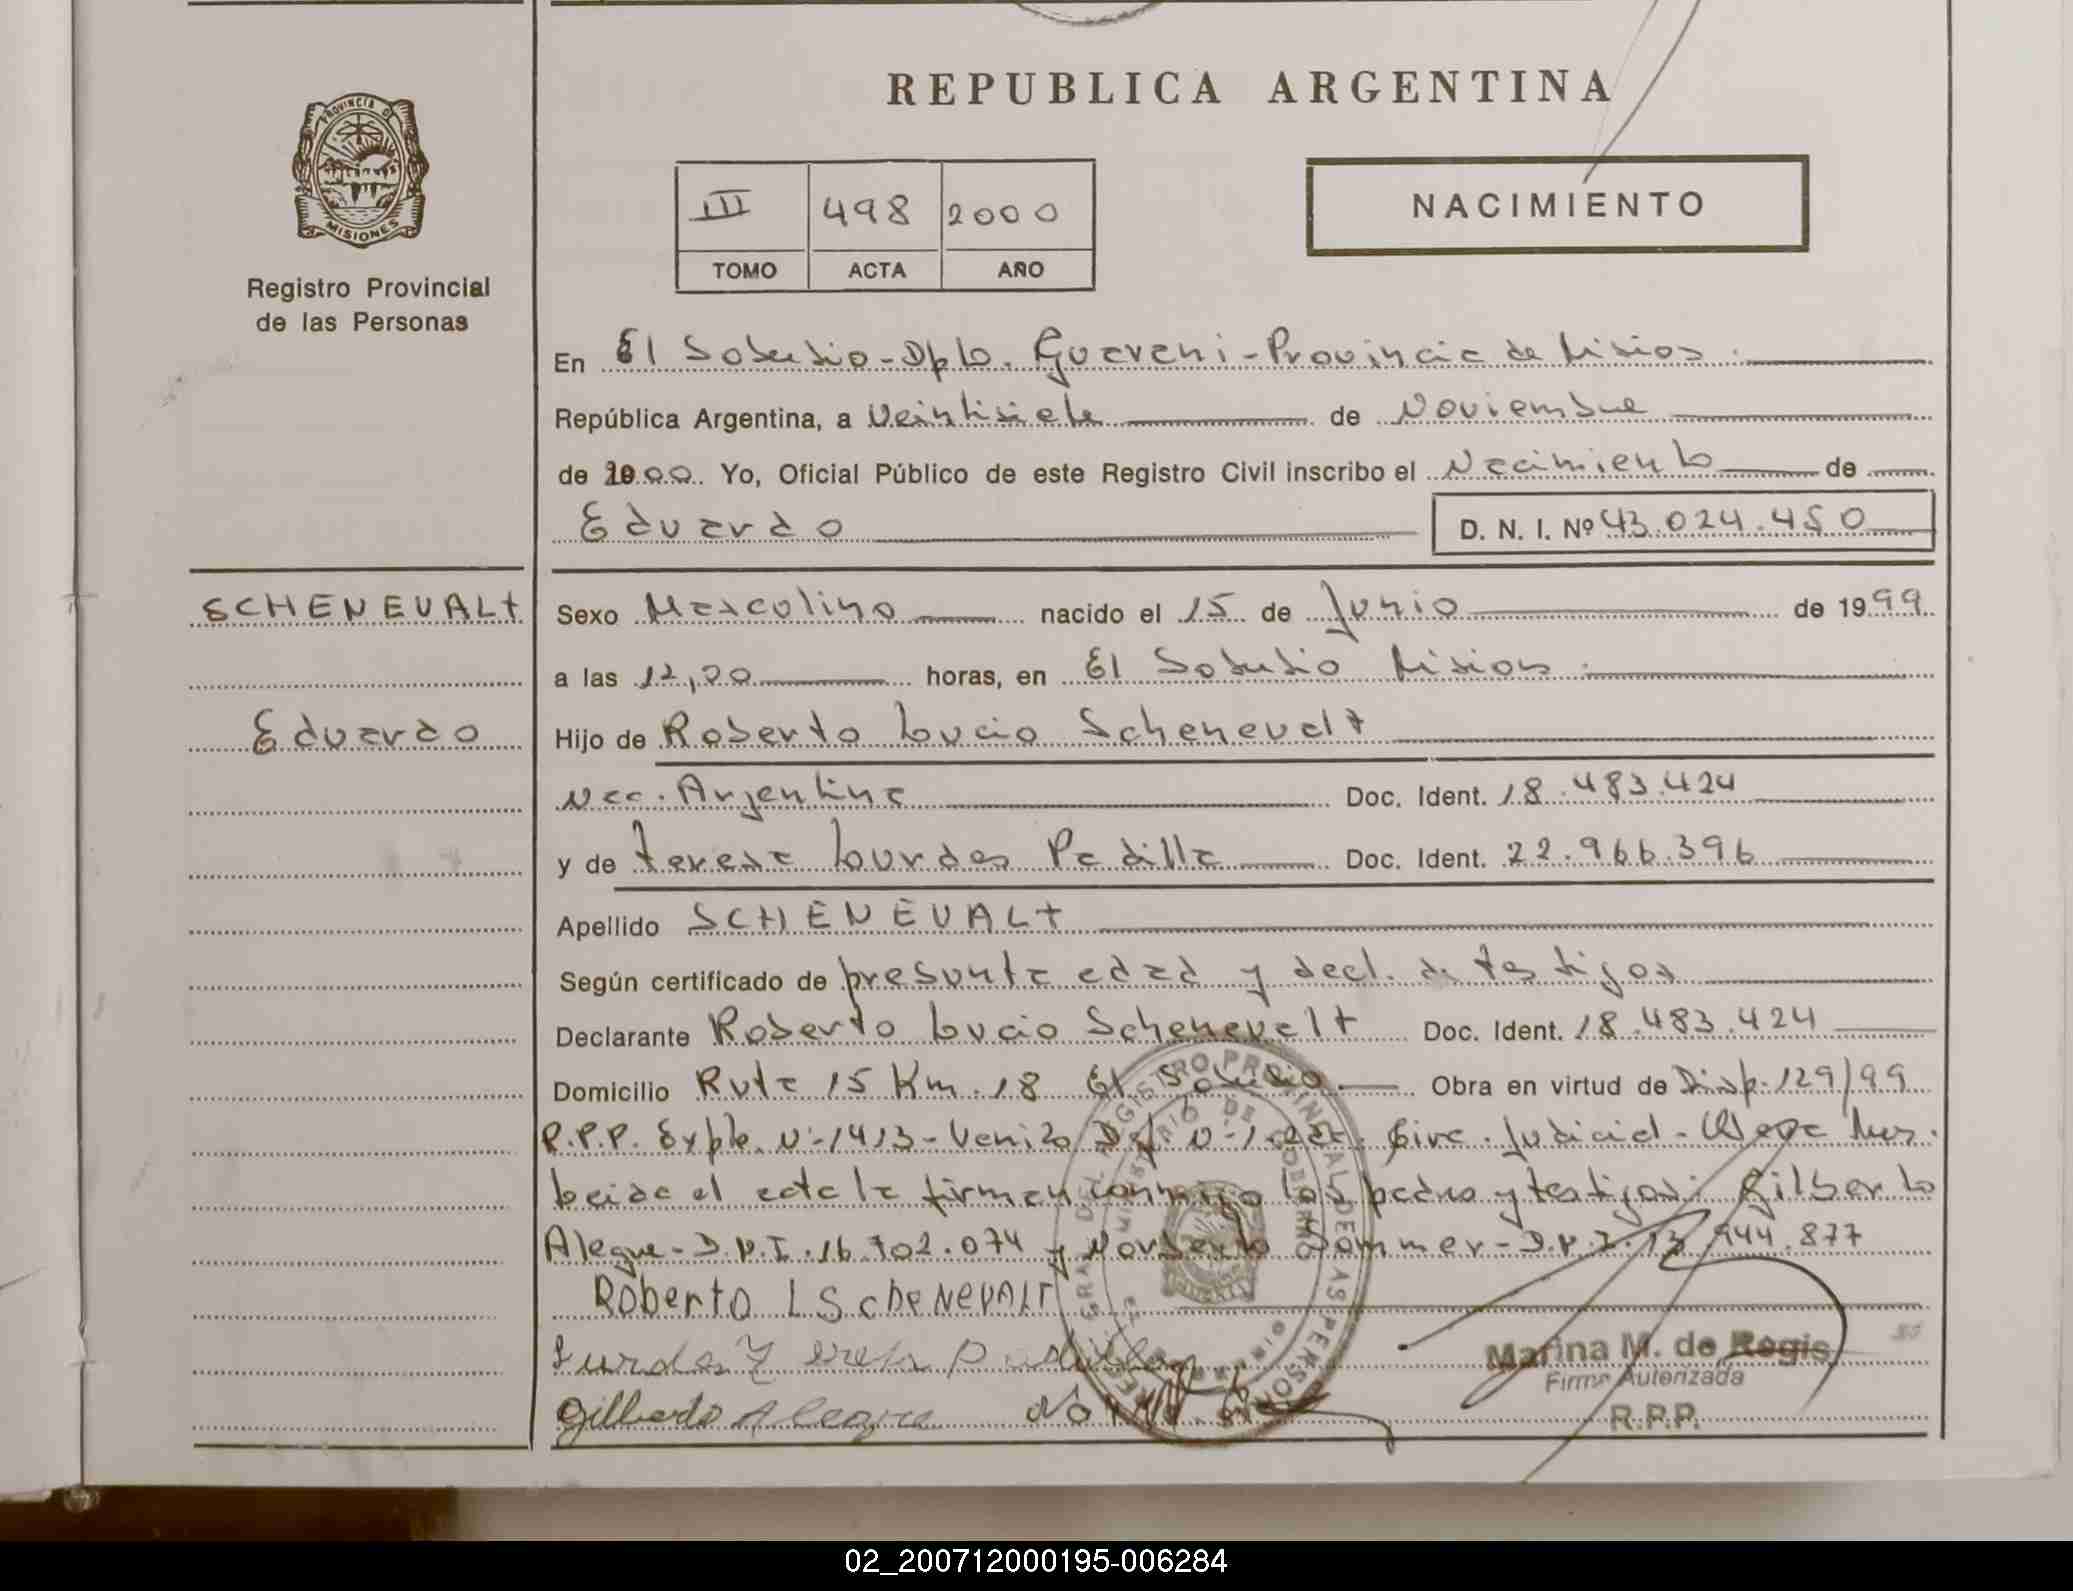 REPUBLICA ARGENTINA
PROVINCIA DE
MISIONES
Registro Provincial
de las Personas
III 498 2000
TOMO ACTA AÑO
NACIMIENTO
En El Soberbio - Dpto. Guarani - Provincia de Misios.
República Argentina, a Veintisiete de Noviembre
de 2000. Yo, Oficial Público de este Registro Civil inscribo el Nacimiento de
Eduardo D. N. I. Nº 43.024.450
SCHENEVALt
Eduardo
Sexo Masculino nacido el 15 de Junio de 1999
a las 12,00 horas, en El Soberbio Misios.
Hijo de Roberto Lucio Schenevalt
Nac. Argentina Doc. Ident. 18.483.424
y de teresa Lourdes Padilla Doc. Ident. 22.966.396
Apellido SCHENEVALt
Según certificado de presunta edad y decl. de testigos
Declarante Roberto Lucio Schenevalt Doc. Ident. 18.483.424
Domicilio Ruta 15 Km. 18 El Soberbio Obra en virtud de Disp. 129/99
R.P.P. Expte. Nº 1413 - Def. Nº 1 Circ. Judicial -
Leida el acta la firman conmigo los padres y testigos: Gilberto
Alegre - D.N.I. 16.702.074 y Norberto Sommer - D.N.I. 13.944.877
Roberto L SchenevaLT
Lurdes Padilla
Gilberto Alegre
REGISTRO PROVINCIAL DE LAS PERSONAS
MINISTERIO DE GOBIERNO
Marina M. de Regis
Firma Autorizada
R.P.P.
02_200712000195-006284